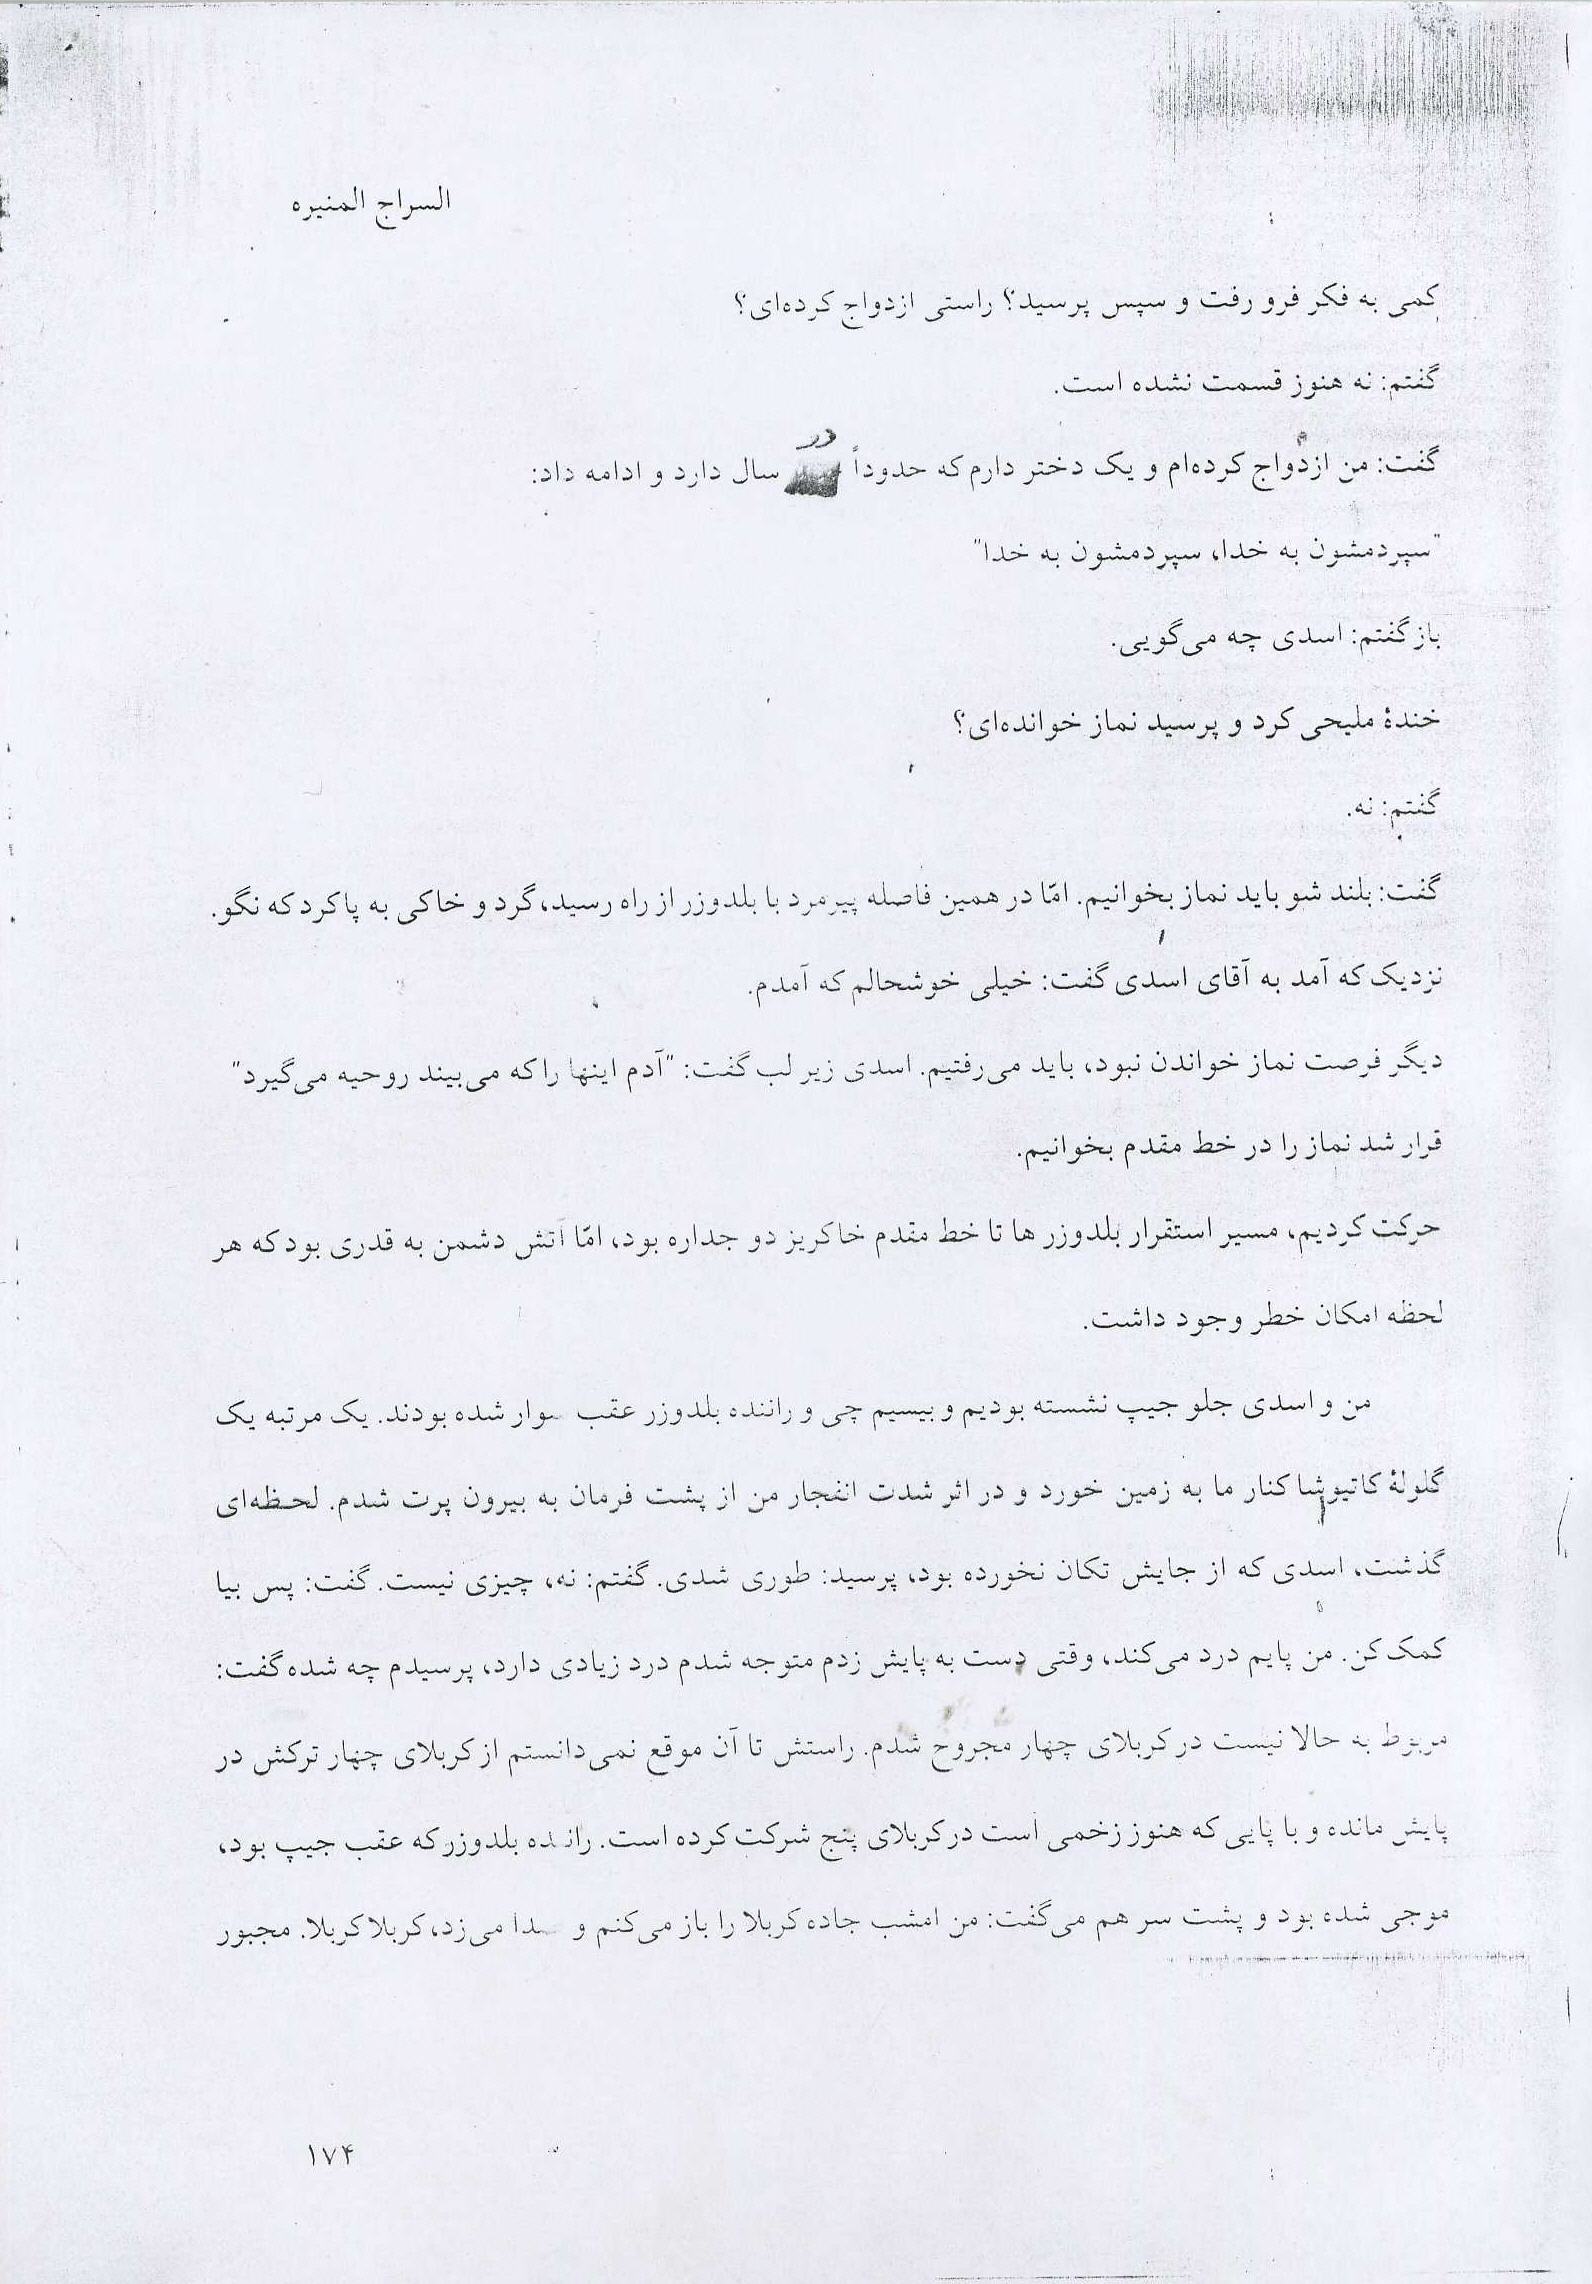 السراج المنیره
کمی به فکر فرو رفت و سپس پرسید؟ راستی ازدواج کرده‌ای؟
گفتم: نه هنوز قسمت نشده است.
گفت: من ازدواج کرده‌ام و یک دختر دارم که حدوداً سال دارد و ادامه داد:
"سپردمشون به خدا، سپردمشون به خدا"
باز گفتم: اسدی چه می‌گویی.
خندۀ ملیحی کرد و پرسید نماز خوانده‌ای؟
گفتم: نه.
گفت: بلند شو باید نماز بخوانیم. امّا در همین فاصله پیرمرد با بلدوزر از راه رسید، گرد و خاکی به پا کرد که نگو.
نزدیک که آمد به آقای اسدی گفت: خیلی خوشحالم که آمدم.
دیگر فرصت نماز خواندن نبود، باید می‌رفتیم. اسدی زیر لب گفت: "آدم اینها را که می‌بیند روحیه می‌گیرد"
قرار شد نماز را در خط مقدم بخوانیم.
حرکت کردیم، مسیر استقرار بلدوزر ها تا خط مقدم خاکریز دو جداره بود، امّا آتش دشمن به قدری بود که هر
لحظه امکان خطر وجود داشت.
من و اسدی جلو جیپ نشسته بودیم و بیسیم چی و راننده بلدوزر عقب سوار شده بودند. یک مرتبه یک
گلولۀ کاتیوشا کنار ما به زمین خورد و در اثر شدت انفجار من از پشت فرمان به بیرون پرت شدم. لحظه‌ای
گذشت، اسدی که از جایش تکان نخورده بود، پرسید: طوری شدی. گفتم: نه، چیزی نیست. گفت: پس بیا
کمک کن. من پایم درد می‌کند، وقتی دست به پایش زدم متوجه شدم درد زیادی دارد، پرسیدم چه شده گفت:
مربوط به حالا نیست در کربلای چهار مجروح شدم. راستش تا آن موقع نمی‌دانستم از کربلای چهار ترکش در
پایش مانده و با پایی که هنوز زخمی است در کربلای پنج شرکت کرده است. راننده بلدوزر که عقب جیپ بود،
موجی شده بود و پشت سر هم می‌گفت: من امشب جاده کربلا را باز می‌کنم و صدا می‌زد، کربلا کربلا. مجبور
۱۷۴